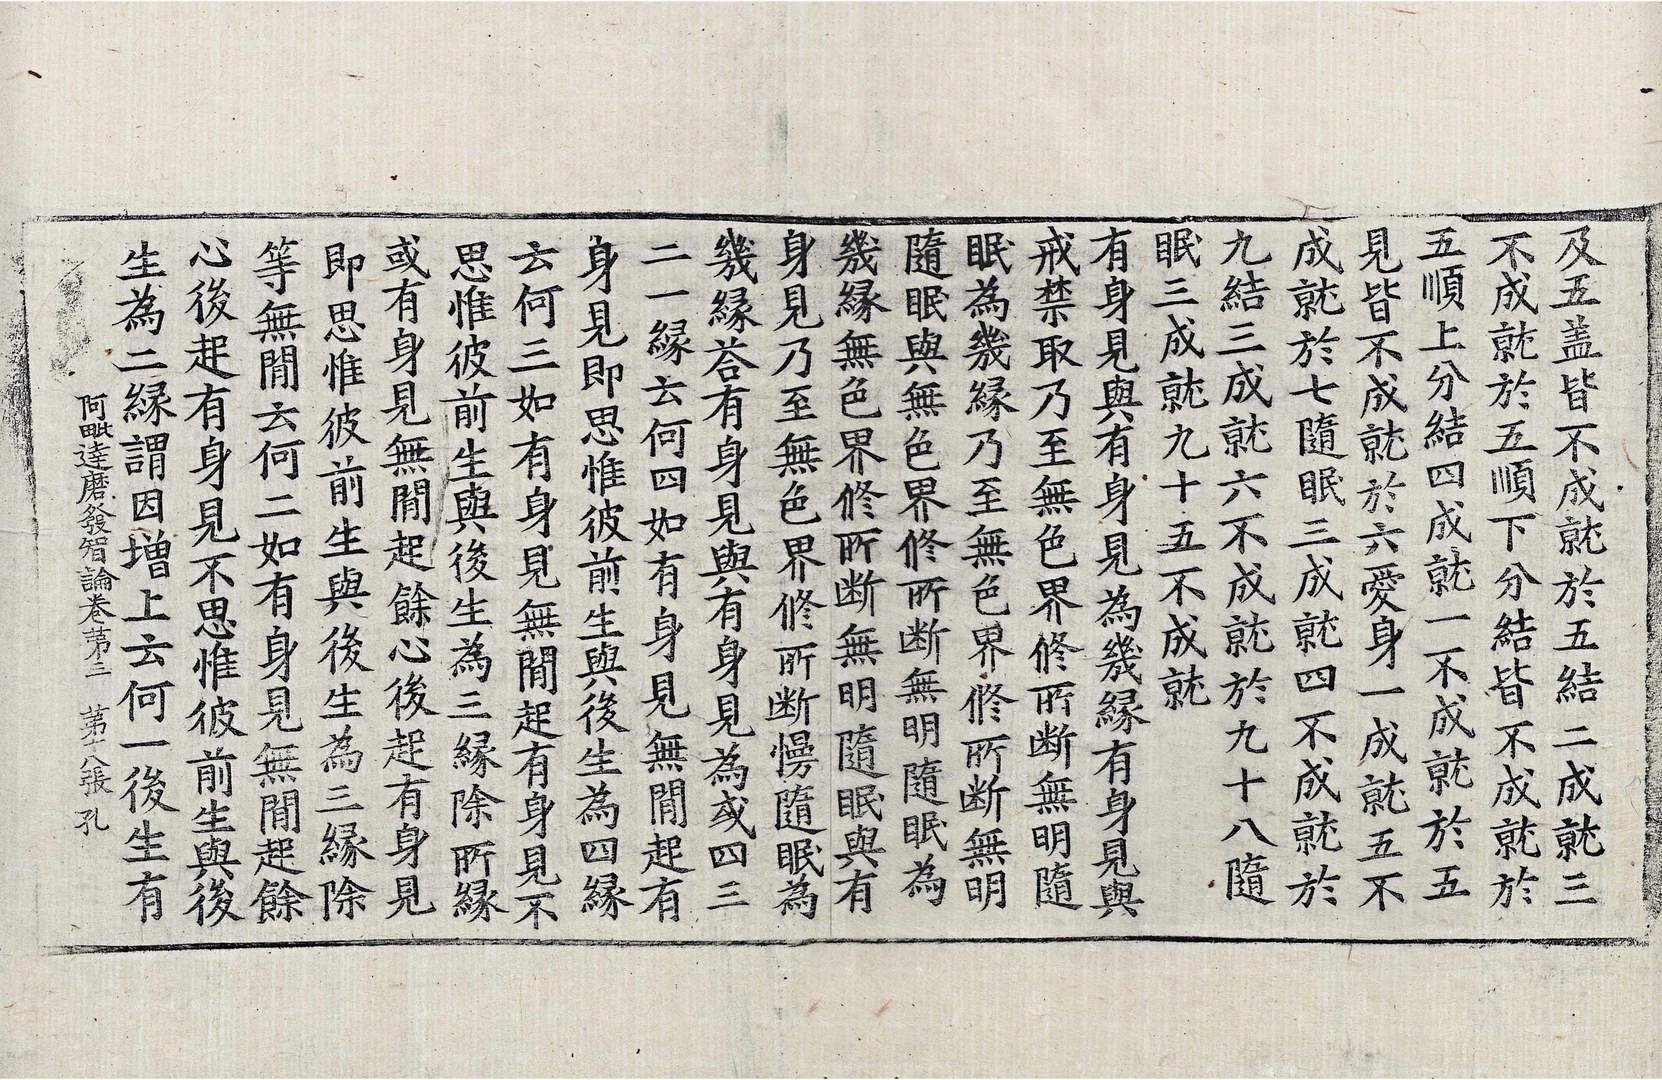 及五盖皆不成就於五結二成就三
不成就於五順下分結皆不成就於
五順上分結四成就一不成就於五
見皆不成就於六愛身一成就五不
成就於七隨眠三成就四不成就於
九結三成就六不成就於九十八隨
眠三成就九十五不成就
有身見與有身見為幾縁有身見與
戒禁取乃至無色界修所断無明隨
眠為幾縁乃至無色界修所断無明
隨眠與無色界修所断無明隨眠為
幾縁無色界修所断無明隨眠與有
身見乃至無色界修所断慢隨眠為
幾縁荅有身見與有身見為或四三
二一縁云何四如有身見無間起有
身見即思惟彼前生與後生為四縁
云何三如有身見無間起有身見不
思惟彼前生與後生為三縁除所縁
或有身見無間起餘心後起有身見
即思惟彼前生與後生為三縁除
等無間云何二如有身見無間起餘
心後起有身見不思惟彼前生與後
生為二縁謂因增上云何一後生有
阿毗達磨發智論卷第三 第十八張 孔